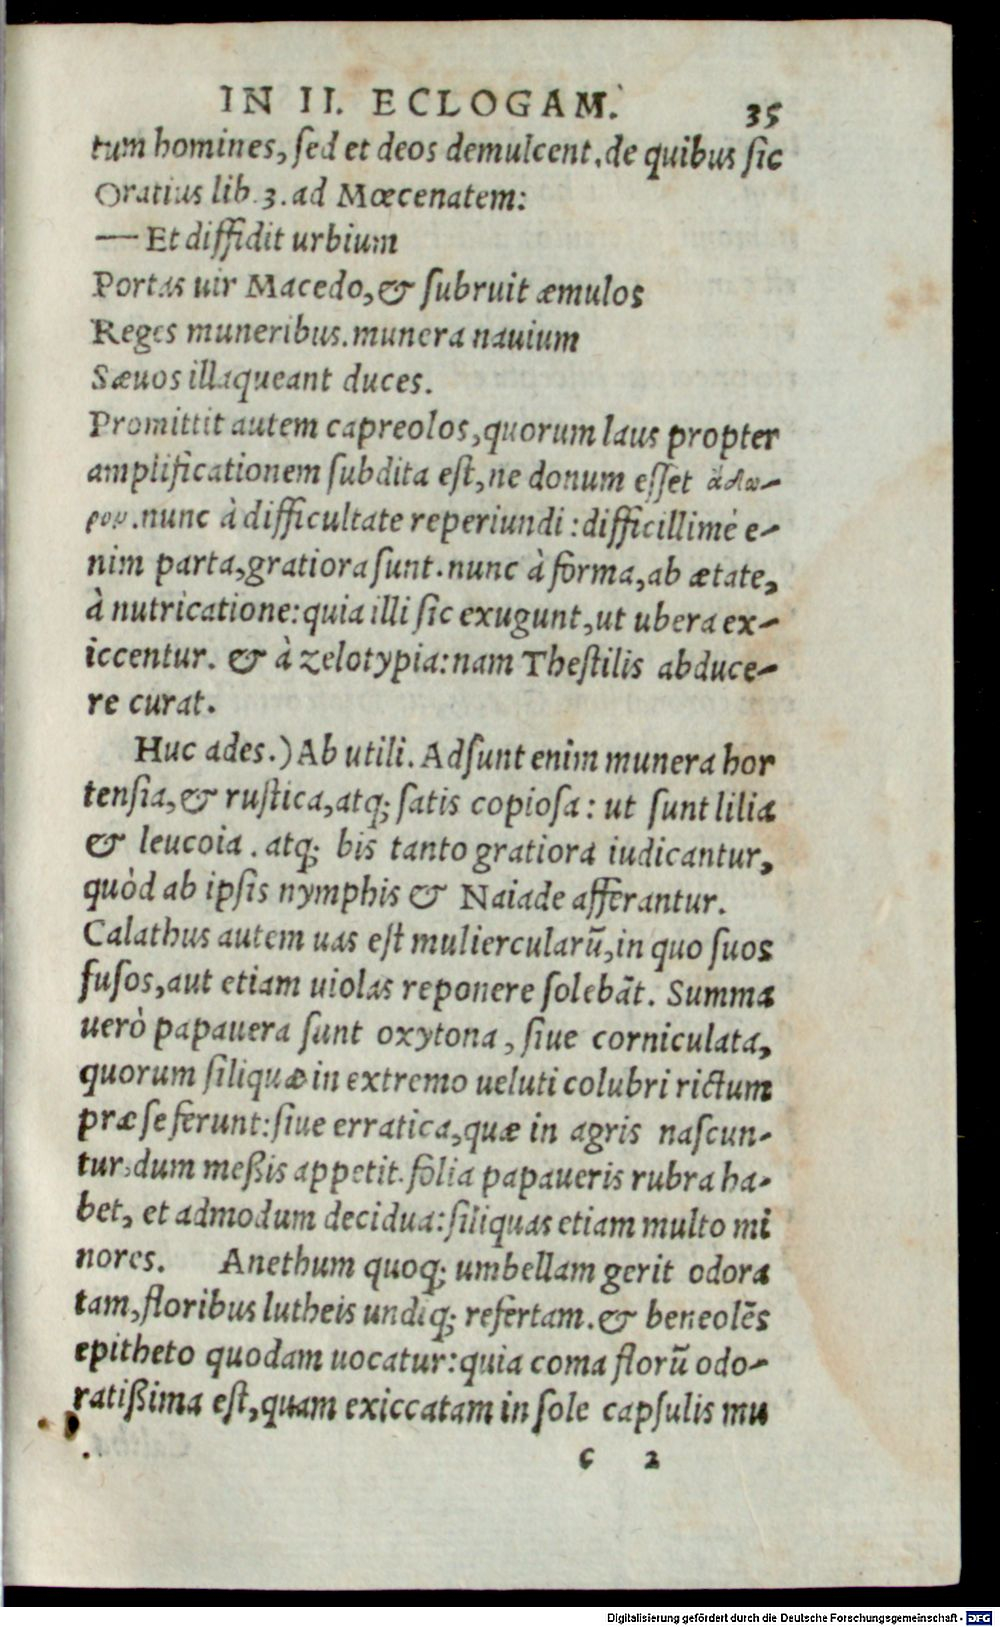 IN II. ECLOGAM. 35
tum homines, ſed et deos demulcent. de quibus ſic
Oratius lib. 3. ad Mœcenatem:
— Et diffidit urbium
Portas uir Macedo, & ſubruit æmulos
Reges muneribus. munera nauium
Sæuos illaqueant duces.
Promittit autem capreolos, quorum laus propter
amplificationem ſubdita eſt, ne donum eſſet ἄδω-
ρον. nunc à difficultate reperiundi: difficillimè e-
nim parta, gratiora ſunt. nunc à forma, ab ætate,
à nutricatione: quia illi ſic exugunt, ut ubera ex-
iccentur. & à zelotypia: nam Theſtilis abduce-
re curat.
Huc ades.) Ab utili. Adſunt enim munera hor
tenſia, & ruſtica, atq; ſatis copioſa: ut ſunt lilia
& leucoia. atq; bis tanto gratiora iudicantur,
quòd ab ipſis nymphis & Naiade afferantur.
Calathus autem uas eſt muliercularū, in quo ſuos
fuſos, aut etiam uiolas reponere ſolebāt. Summa
uerò papauera ſunt oxytona, ſiue corniculata,
quorum ſiliquæ in extremo ueluti colubri rictum
præ ſe ferunt: ſiue erratica, quæ in agris naſcun-
tur, dum meßis appetit. folia papaueris rubra ha-
bet, et admodum decidua: ſiliquas etiam multo mi
nores. Anethum quoq; umbellam gerit odora
tam, floribus lutheis undiq; refertam. & beneolēs
epitheto quodam uocatur: quia coma florū odo-
ratißima eſt, quam exiccatam in ſole capſulis mu
c 2
Digitalisierung gefördert durch die Deutsche Forschungsgemeinschaft - DFG